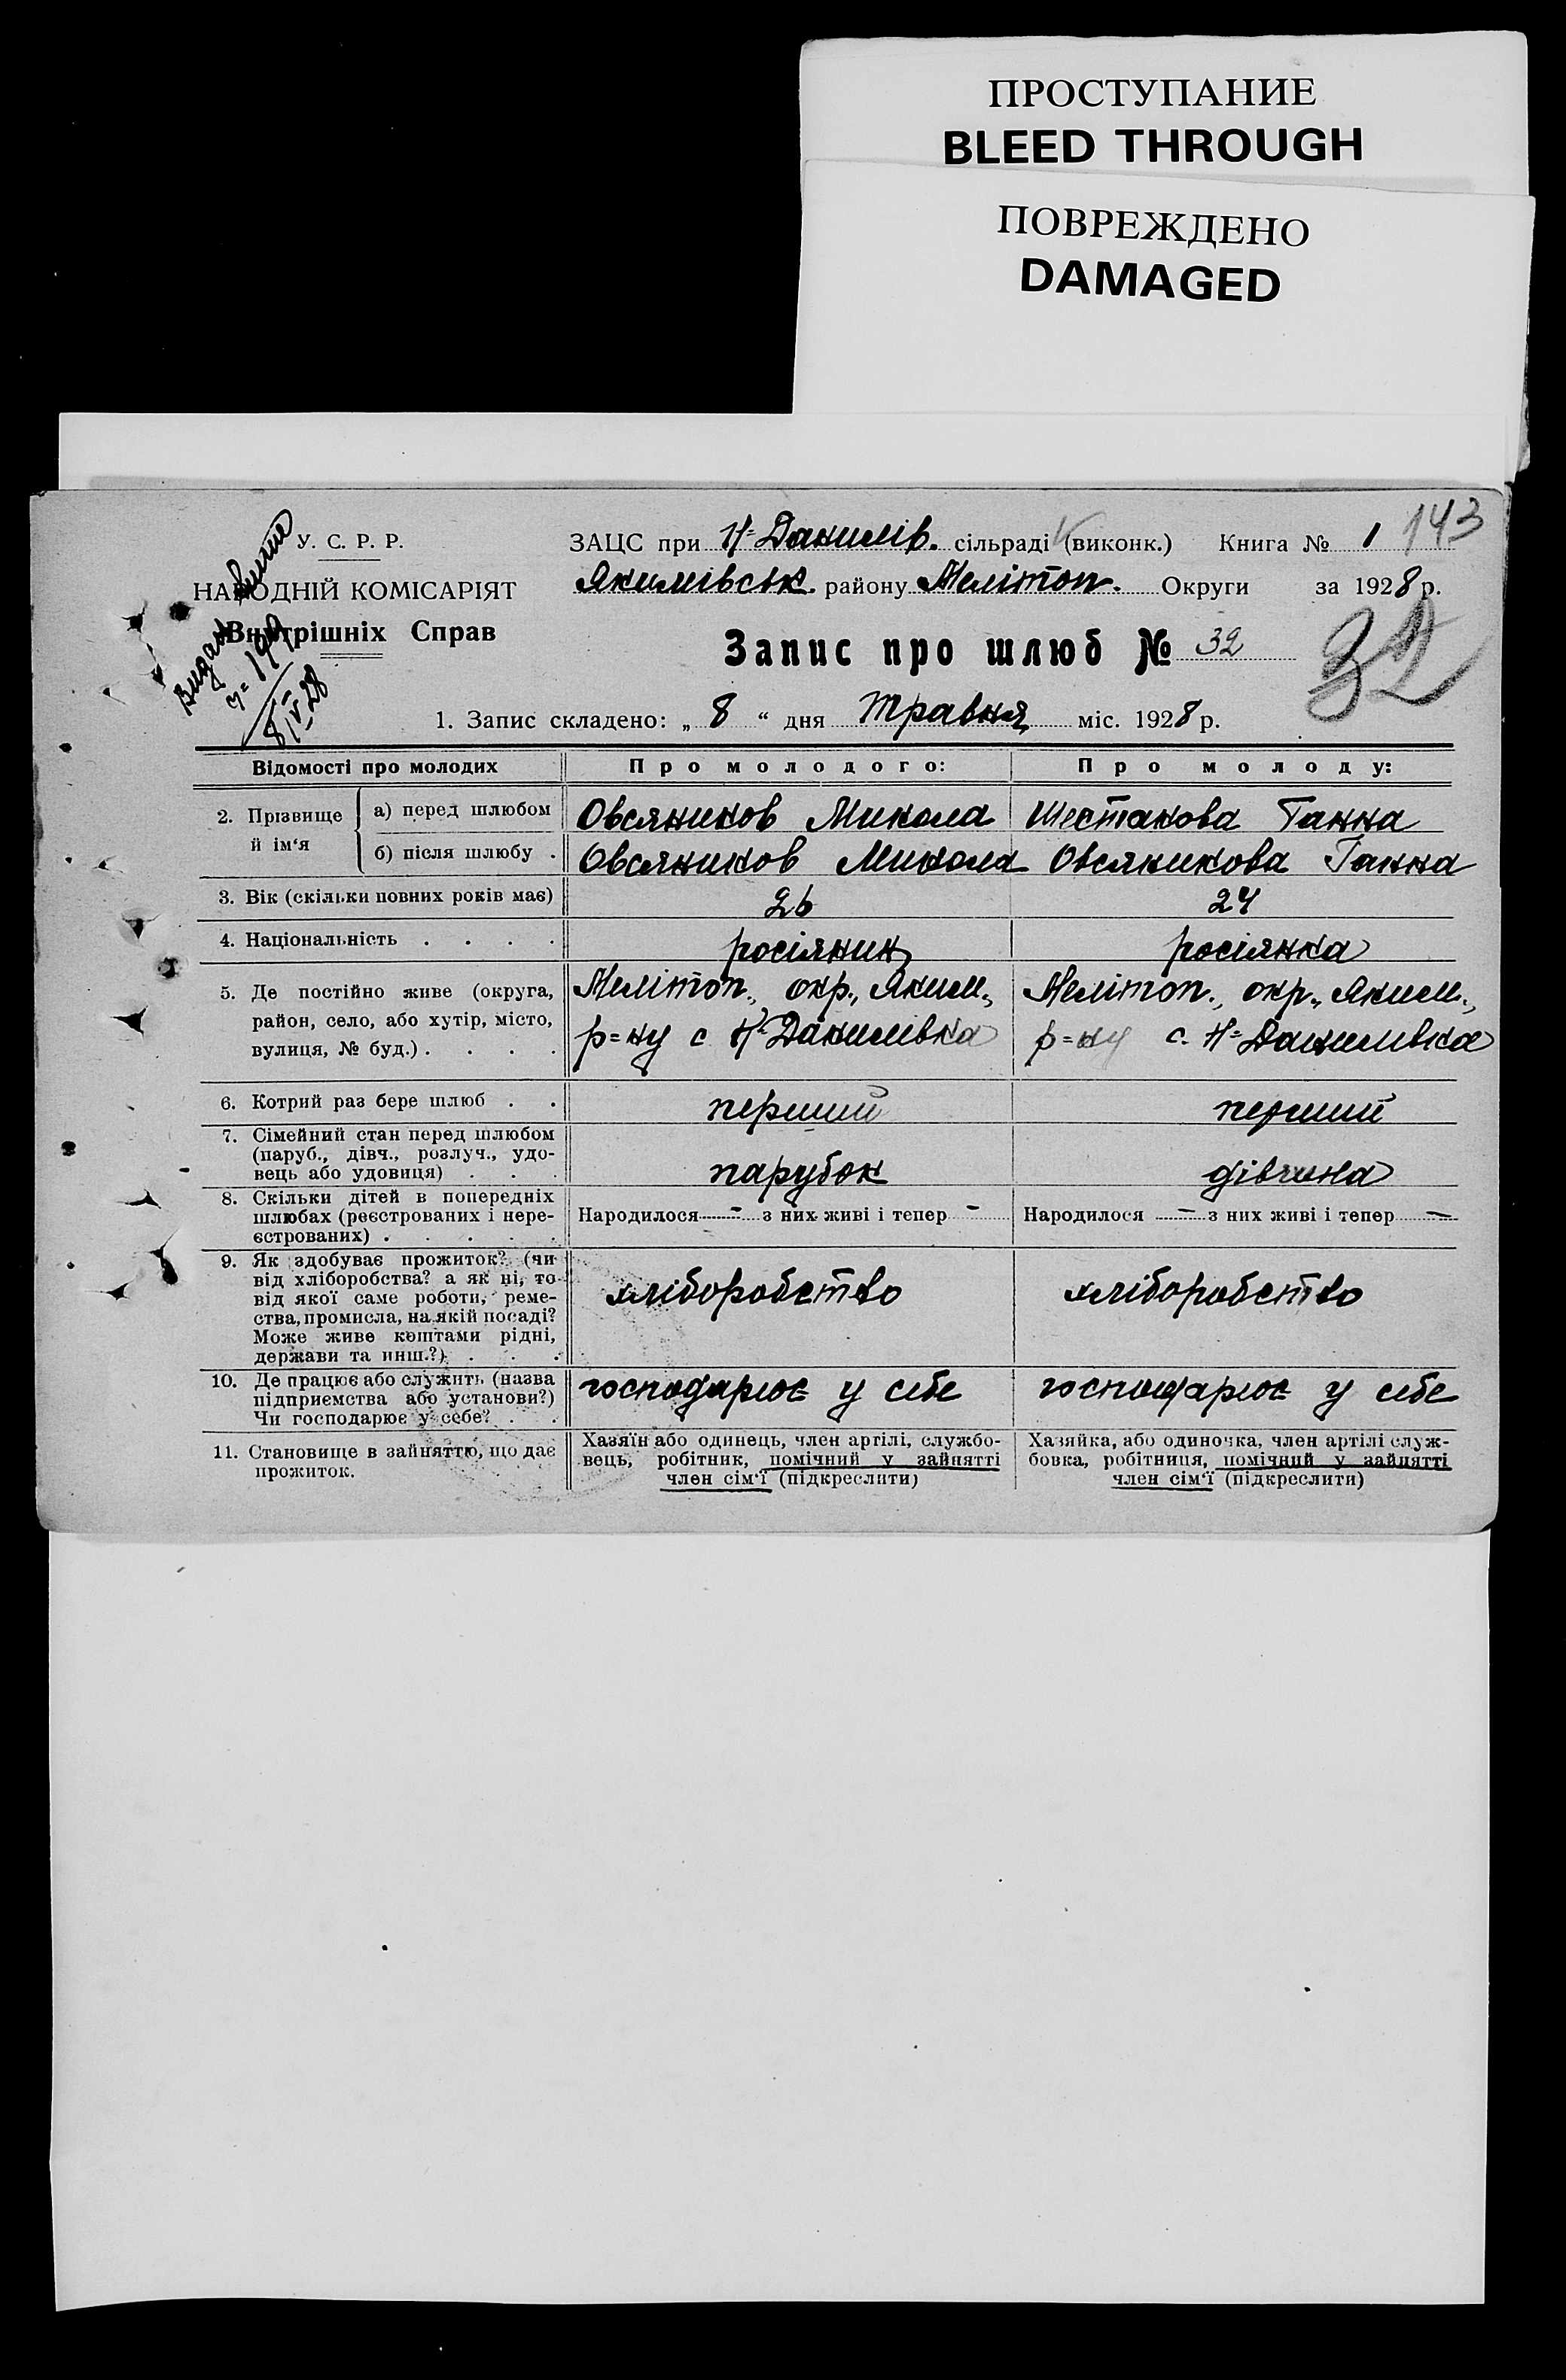 ПРОСТУПАНИЕ
BLEED THROUGH
ПОВРЕЖДЕНО
DAMAGED
У. С. Р. Р.
НАРОДНІЙ КОМІСАРІЯТ
Внутрішніх Справ
8/V 28
ЗАЦС при Н-Данилів. сільраді (виконк.) Книга № 1 143
Якимівськ. району Мелітоп. Округи за 1928 р.
Запис про шлюб № 32
32
1. Запис складено: „ 8 “ дня Травня міс. 1928 р.
Відомості про молодих Про молодого: Про молоду:
2. Прізвище й ім‘я
а) перед шлюбом Овсяников Микола Шестакова Ганна
б) після шлюбу . Овсяников Микола Овсяникова Ганна
3. Вік (скільки повних років має) 26 24
4. Національність . . . . росіянин росіянка
5. Де постійно живе (округа, Мелітоп., окр., Яким., Мелітоп., окр., Яким.,
район, село, або хутір, місто, р=ну с Н-Данилівка р=ну с. Н=Данилівка
вулиця, № буд.) . . . .
6. Котрий раз бере шлюб . . перший перший
7. Сімейний стан перед шлюбом
(паруб., дівч., розлуч., удо-
вець або удовиця) . . . парубок дівчина
8. Скільки дітей в попередніх
шлюбах (реєстрованих і нере- Народилося - з них живі і тепер - Народилося - з них живі і тепер -
єстрованих) . . . . .
9. Як здобуває прожиток? (чи
від хліборобства? а як ні, то
від якої саме роботи, реме- хліборобство хліборобство
ства, промисла, на якій посаді?
Може живе коштами рідні,
держави та инш.?) . . .
10. Де працює або служить (назва господарює у себе господарює у себе
підприємства або установи?)
Чи господарює у себе? . .
11. Становище в зайняттю, що дає прожиток.
Хазяїн або одинець, член артілі, службо-
вець, робітник, помічний у зайнятті
член сім‘ї (підкреслити)
Хазяйка, або одиночка, член артілі служ-
бовка, робітниця, помічний у зайнятті
член сім‘ї (підкреслити)